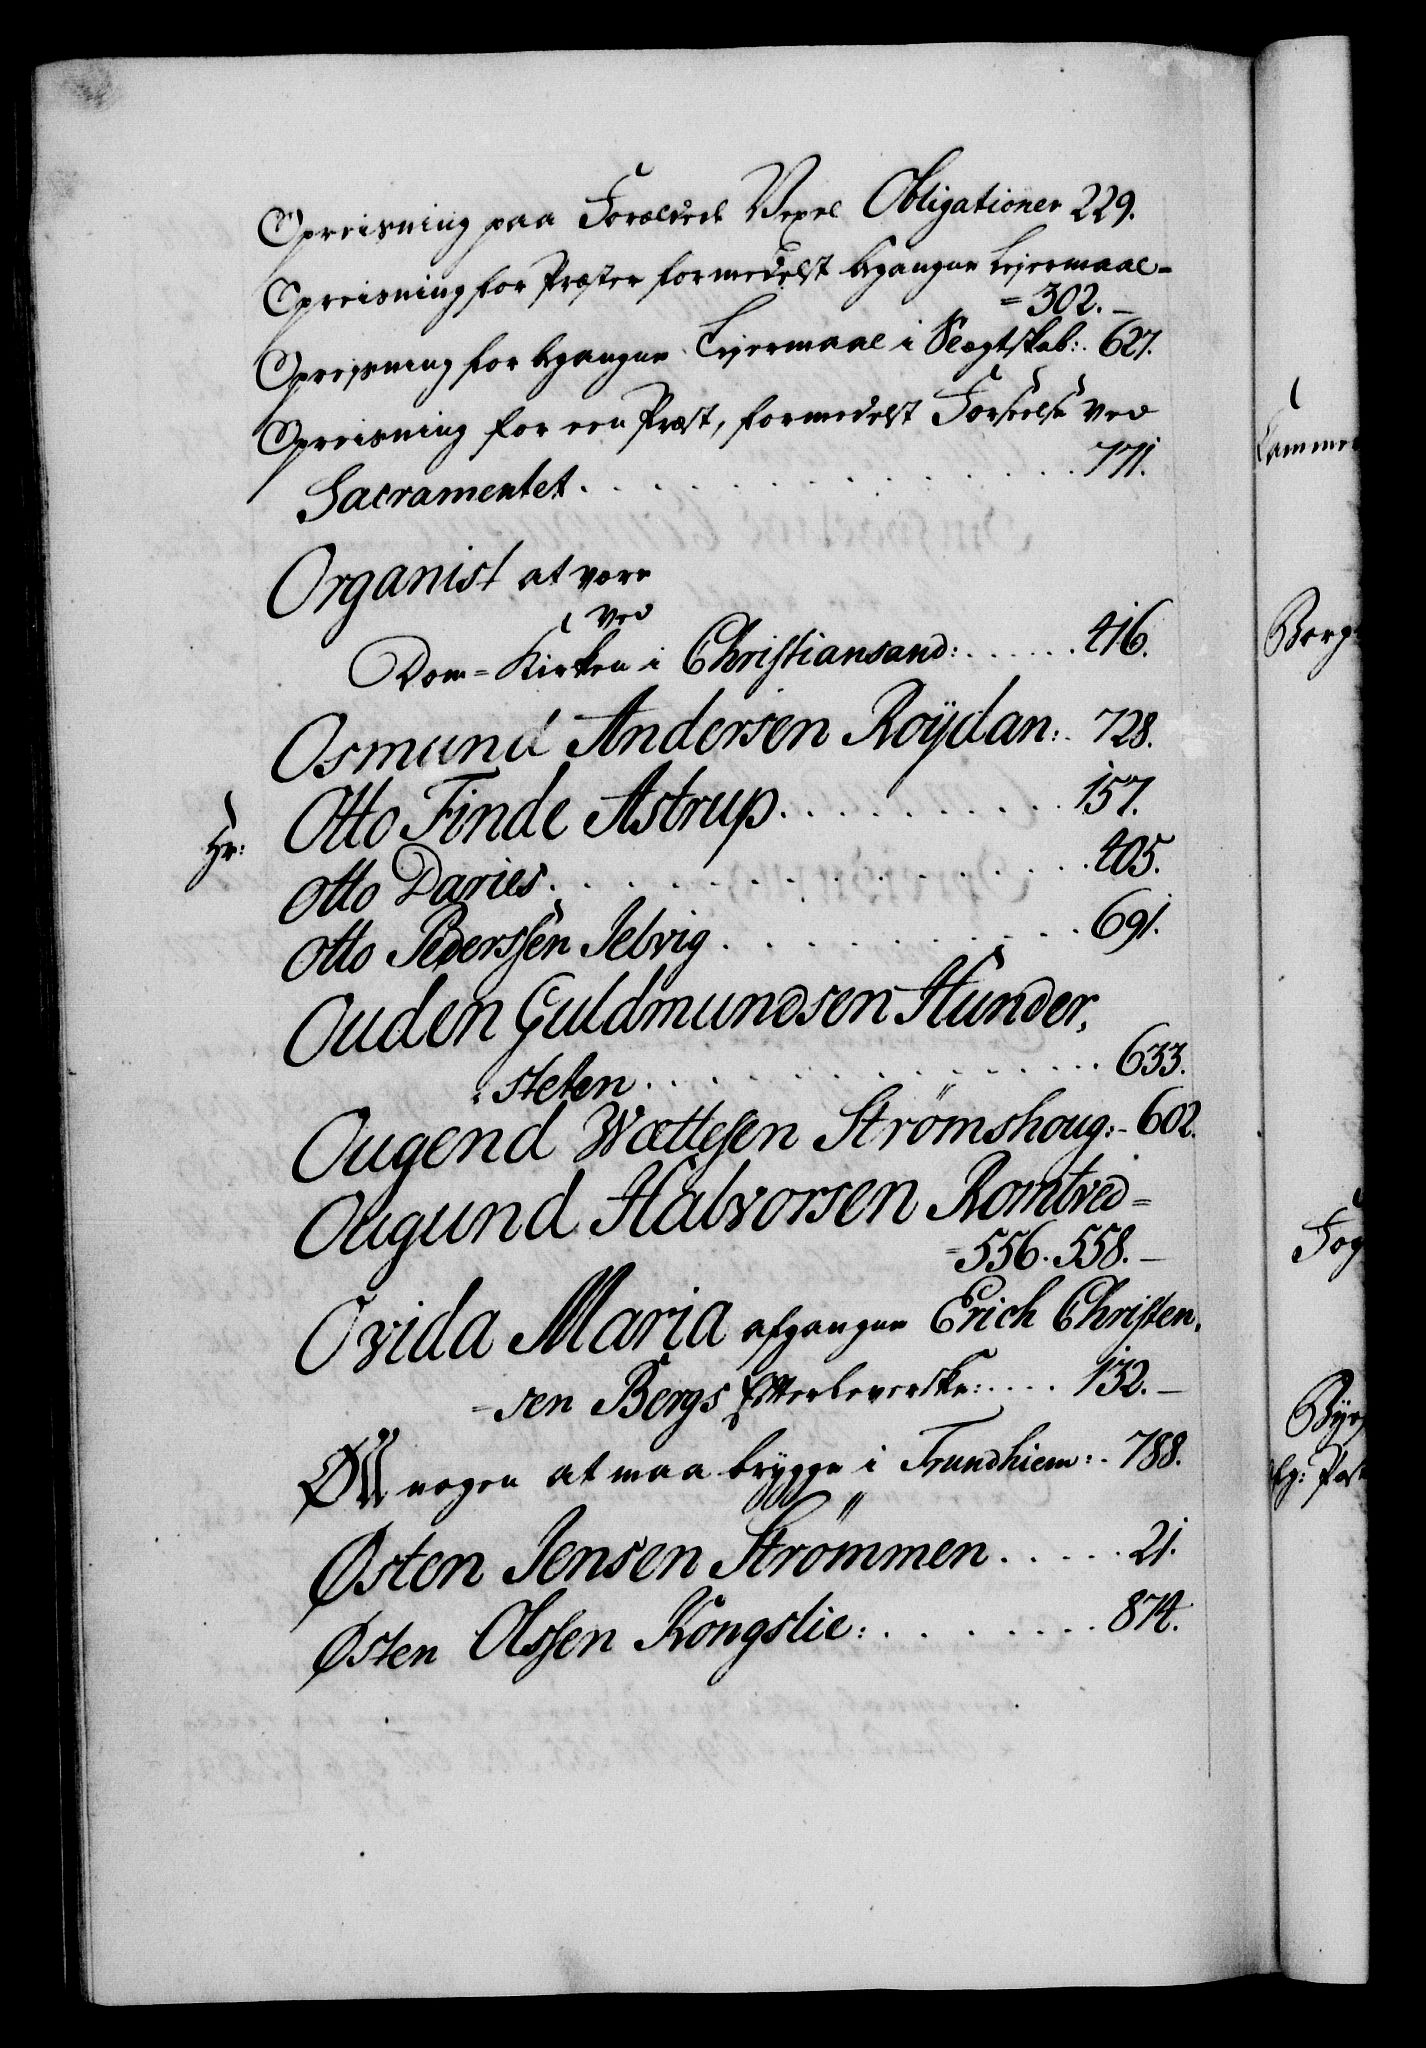 Opreisning paa Forældede Vexel Obligationer 229.
Opreisning for Præster formedelst begangne Leiermaal =
= 302. –
Opreisning for begangne Leiermaal i Slegtskab: . 627.
Opreisning for een Præst, formedelst Forseelse ved
Sacramentet . . . . . . . . . . . . . . 771.
Organist at være
ved
Dom = Kirken i Christiansand: . . . . . . 416.
Osmund Andersen Roÿdan: . 728.
Otto Finde Astrup . . . . . . . . . . 157.
Hr: Otto Daries . . . . . . . . . . . . . . . 405.
Otto Pederssen Jelvig . . . . . . . . . . . 691.
Ouden Guldmundsen Hunder,
steten . . . . . . . . . . . . . . . . 633.
Ougend Wættesen Strömshoug: - 602.
Ougund Halvorsen Romtved =
= 556. 558. –
Ovida Maria afgangne Erich Christen,
= sen Bergs Efterleverske: . . . . 132. –
Øll nogen at maa brygge i Trundhiem: . 788.
Østen Jensen Strömmen . . . . . 21.
Østen Olssen Kongslie: . . . . . . . . 874.
Borg
Fog